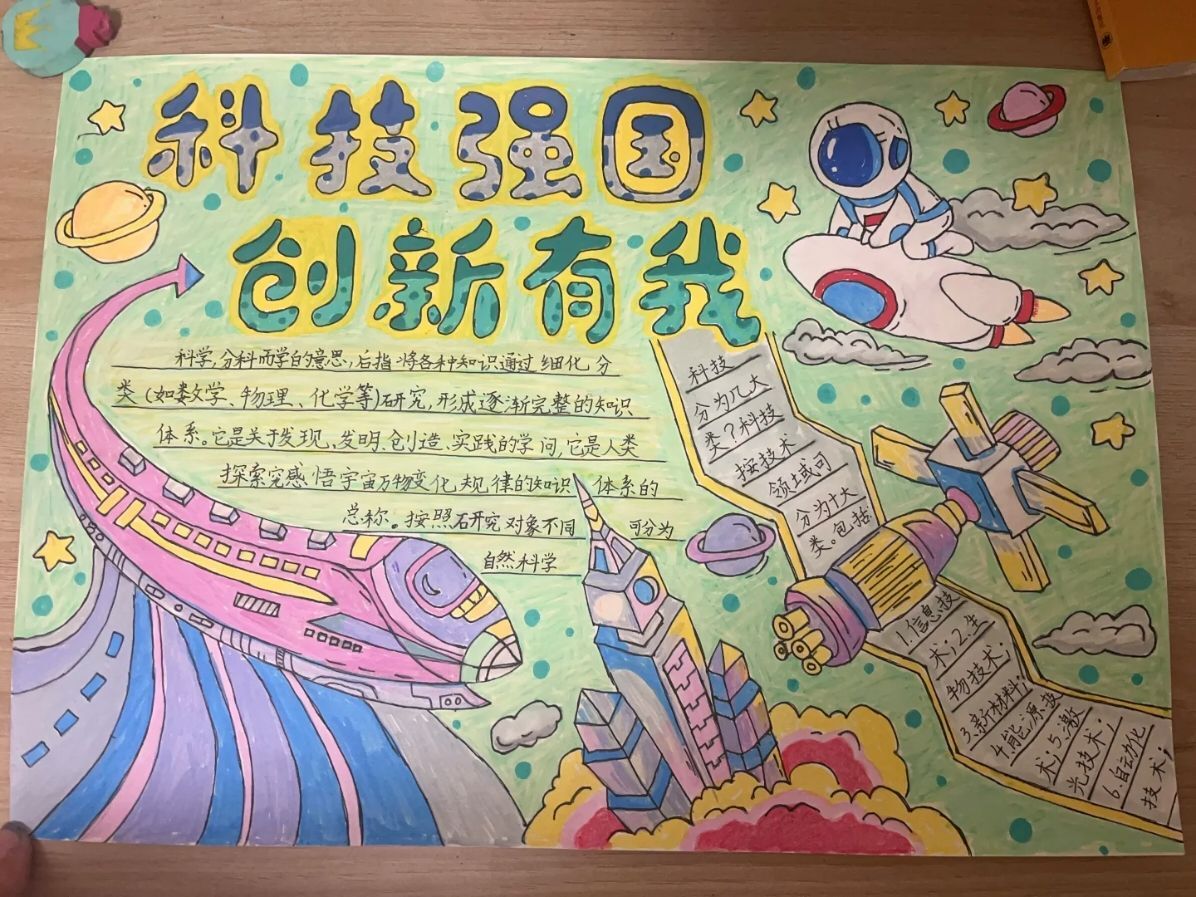 科技强国
创新有我
科学,分科而学的意思,后指将各种知识通过细化分
类(如数学、物理、化学等)研究,形成逐渐完整的知识
体系。它是关于发现、发明、创造、实践的学问,它是人类
探索、感悟宇宙万物变化规律的知识体系的
总称。按照研究对象不同 可分为
自然科学
科技
分为几大
类?科技
按技术
领域可
分为十大
类。包括
1.信息技
术;2.生
物技术;
3.新材料;
4.能源技
术;5.激
光技术;
6.自动化
技术;